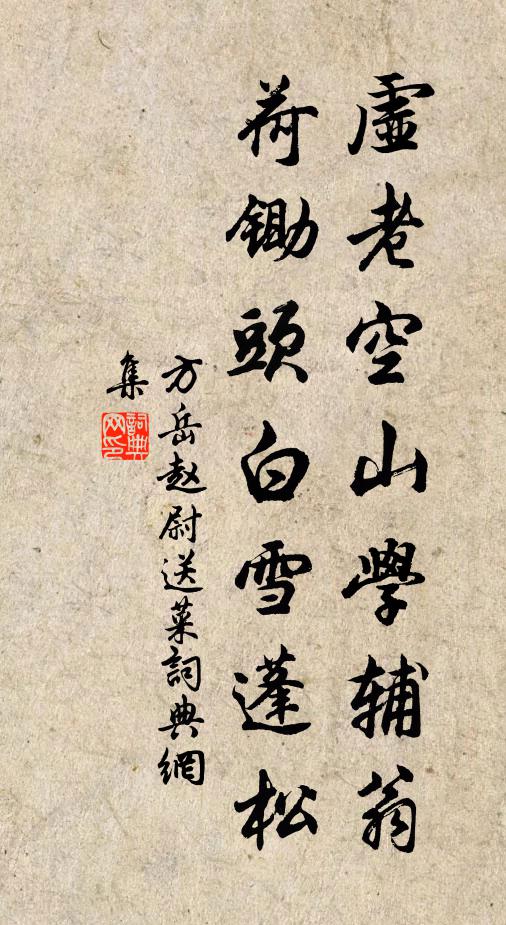 虛老空山學辅翁
荷鋤頭白雪蓬松
方岳赵尉送菜詞典網
集
詞典
网印